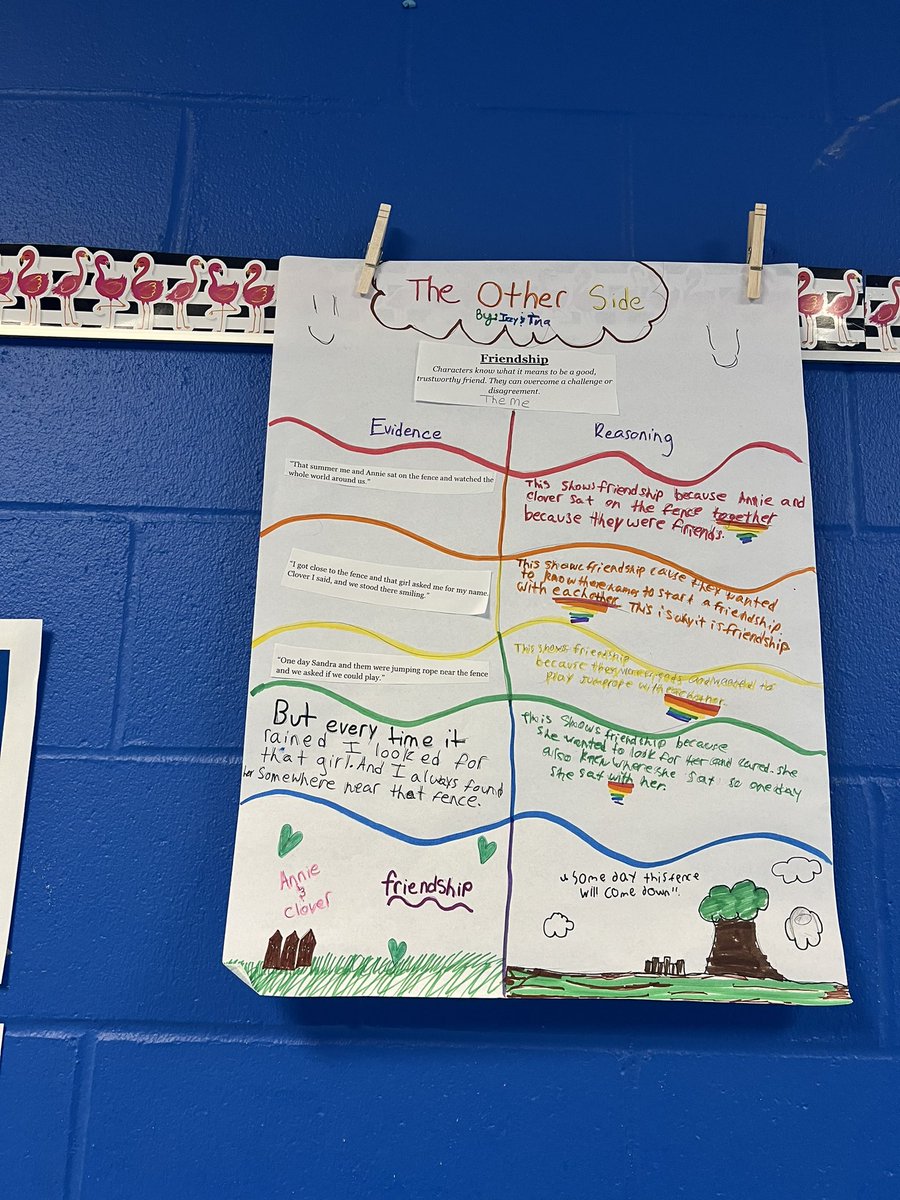 The Other Side
By: Izzy & Tina
Friendship
Characters know what it means to be a good,
trustworthy friend. They can overcome a challenge or
disagreement.
Theme
Evidence
Reasoning
"That summer me and Annie sat on the fence and watched the
whole world around us."
This shows friendship because Annie and
clover sat on the fence together
because they were friends.
"I got close to the fence and that girl asked me for my name.
Clover I said, and we stood there smiling."
This shows friendship cause they wanted
to know there names to start a friendship.
with eachother. This is why it is friendship
"One day Sandra and them were jumping rope near the fence
and we asked if we could play."
This shows friendship
because they were friends and wanted to
play jumprope with eachother.
But every time it
rained I looked for
that girl. And I always found
her Somewhere near that fence.
This Shows friendship because
she wanted to look for Her and cared. she
also knew where she sat so one day
she sat with her.
Annie
&
clover
friendship
"Some day this fence
will come down".